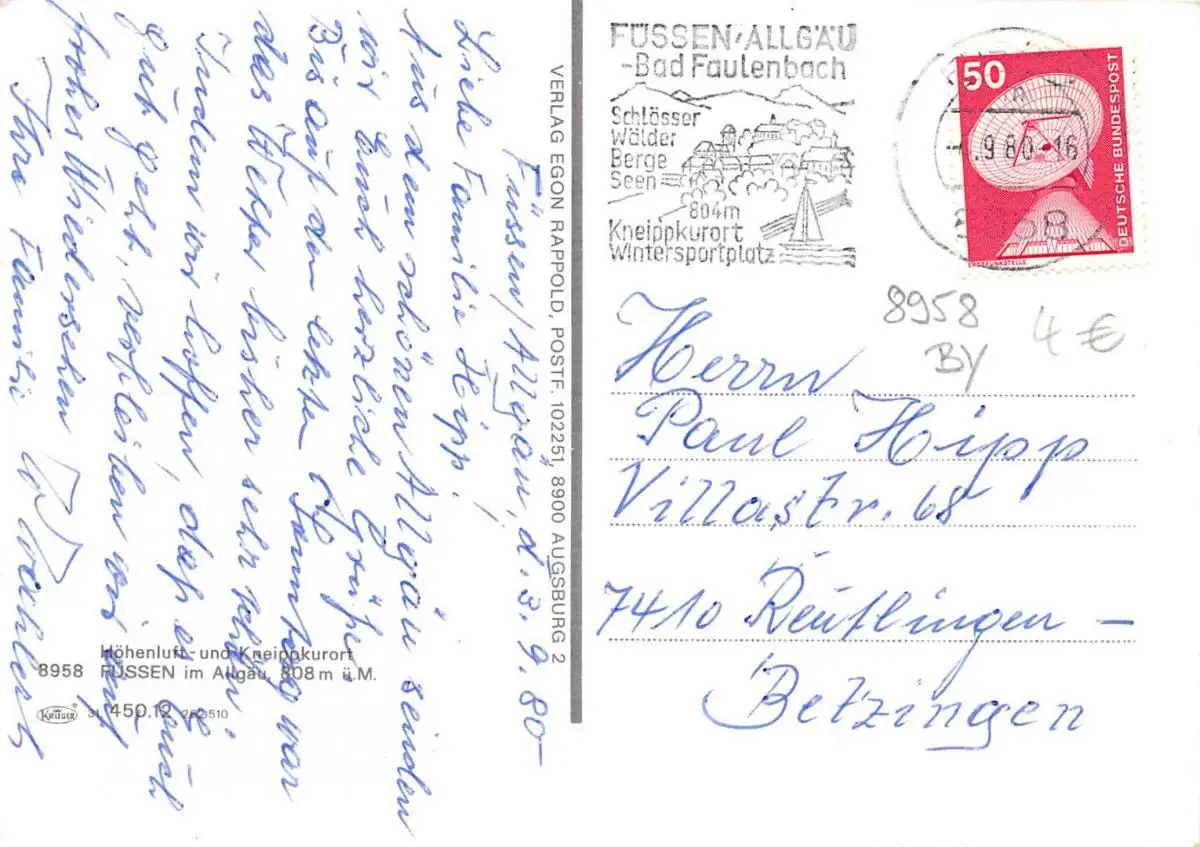 Füssen/Allgäu, d. 3.9.80
Liebe Familie Hipp!
Aus dem schönen Allgäu senden
wir Euch herzliche Grüße.
Bis auf den letzten Samstag war
das Wetter bisher sehr schön.
Indem wir hoffen, daß es Euch
gut geht, verbleiben wir auf
frohes Wiedersehen
Ihre Familie
VERLAG EGON RAPPOLD, POSTF. 102251, 8900 AUGSBURG 2
Höhenluft- und Kneippkurort
8958 FÜSSEN im Allgäu, 808 m ü.M.
KRÜGER 450.12
FÜSSEN, ALLGÄU
-Bad Faulenbach
Schlösser
Wälder
Berge
Seen
804m
Kneippkurort
Wintersportplatz
.9.80-16
8958
50
DEUTSCHE BUNDESPOST
ERDEFUNKSTELLE
8958
BY
4 €
Herrn
Paul Hipp
Villastr. 68
7410 Reutlingen -
Betzingen